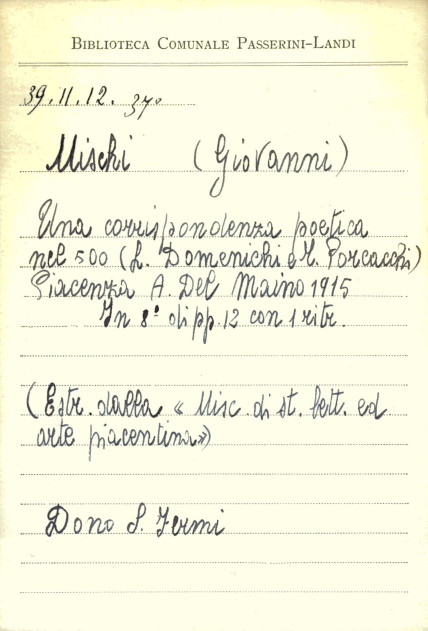 BIBLIOTECA COMUNALE PASSERINI-LANDI
39.11.12. 37º
Mischi (Giovanni)
Una corrispondenza poetica
nel 500 (L. Domenichi e T. Porcacchi)
Piacenza A. Del Maino 1915
In 8º di pp. 12 con 1 ritr.
(Estr. dalla « Misc. di st. lett. ed
arte piacentina»)
Dono S. Fermi